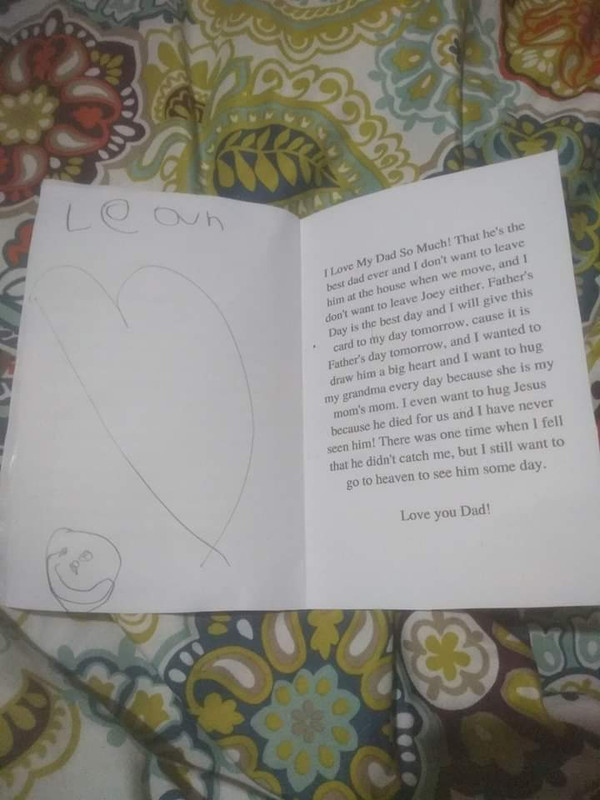 Leah
I Love My Dad So Much! That he's the
best dad ever and I don't want to leave
him at the house when we move, and I
don't want to leave Joey either. Father's
Day is the best day and I will give this
card to my day tomorrow, cause it is
Father's day tomorrow, and I wanted to
draw him a big heart and I want to hug
my grandma every day because she is my
mom's mom. I even want to hug Jesus
because he died for us and I have never
seen him! There was one time when I fell
that he didn't catch me, but I still want to
go to heaven to see him some day.
Love you Dad!